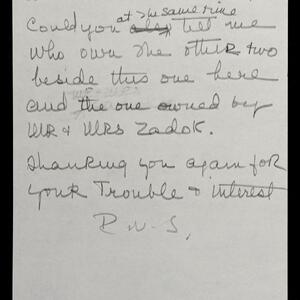 at the same time
Could you tell me
who own the other two
beside this one here
and the one owned by
MR & MRS Zadok.
Thanking you again for
your Trouble & interest
R.W.S.